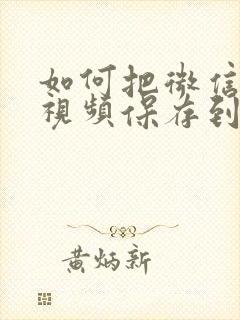 如何把微信
視頻保存到
黄炳新